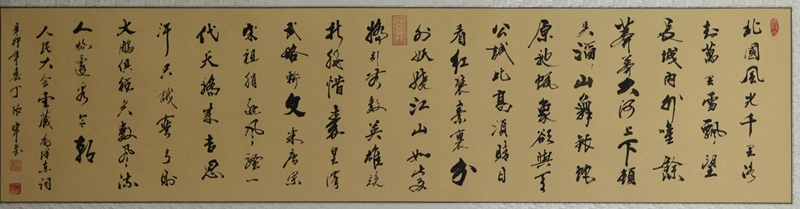 北國風光千里冰
封萬里雪飄望
長城內外唯餘
莽莽大河上下頓
失滔滔山舞銀蛇
原馳蠟象欲與天
公試比高須晴日
看紅裝素裹分
外妖嬈江山如此多
嬌引無數英雄競
折腰惜秦皇漢
武略輸文采唐宗
宋祖稍遜風騷一
代天驕成吉思
汗只識彎弓射
大鵰俱往矣數風流
人物還看今朝
人民大會堂藏毛澤東詞
辛卯年春丁